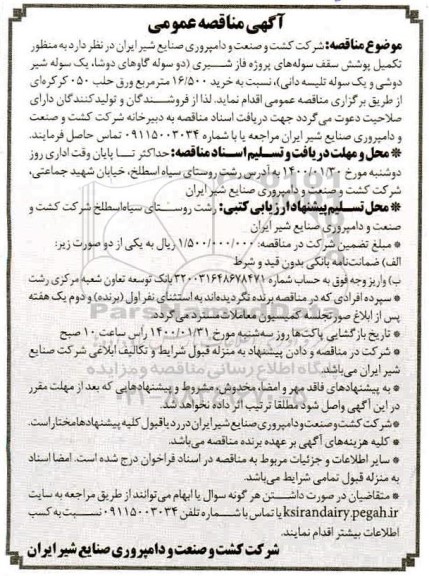 آگهی مناقصه عمومی
موضوع مناقصه: شرکت کشت و صنعت و دامپروری صنایع شیر ایران در نظر دارد به منظور
تکمیل پوشش سقف سوله‌های پروژه فاز شیری (دو سوله گاوهای دوشا، یک سوله شیر
دوشی و یک سوله تلیسه دانی)، نسبت به خرید ۱۶/۵۰۰ مترمربع ورق حلب ۰۵۰ کرکره‌ای
از طریق برگزاری مناقصه عمومی اقدام نماید. لذا از فروشندگان و تولیدکنندگان دارای
صلاحیت دعوت می‌گردد جهت دریافت اسناد مناقصه به دبیرخانه شرکت کشت و صنعت
و دامپروری صنایع شیر ایران مراجعه یا با شماره ۰۹۱۱۵۰۰۳۰۳۴ تماس حاصل فرمایند.
* محل و مهلت دریافت و تسلیم اسناد مناقصه: حداکثر تا پایان وقت اداری روز
دوشنبه مورخ ۱۴۰۰/۰۱/۳۰ به آدرس رشت روستای سیاه اسطلخ، خیابان شهید جماعتی،
شرکت کشت و صنعت و دامپروری صنایع شیر ایران
* محل تسلیم پیشنهاد ارزیابی کتبی: رشت روستای سیاه‌اسطلخ شرکت کشت و
صنعت و دامپروری صنایع شیر ایران
* مبلغ تضمین شرکت در مناقصه: ۱/۵۰۰/۰۰۰/۰۰۰ ریال به یکی از دو صورت زیر:
الف) ضمانت‌نامه بانکی بدون قید و شرط
ب) واریز وجه فوق به حساب شماره ۳۲۰۰۳۱۶۴۸۶۷۸۴۷۱ بانک توسعه تعاون شعبه مرکزی رشت
* سپرده افرادی که در مناقصه برنده نگردیده‌اند به استثنای نفر اول (برنده) و دوم یک هفته
پس از ابلاغ صورتجلسه کمیسیون معاملات مسترد می‌گردد.
* تاریخ بازگشایی پاکت‌ها روز سه‌شنبه مورخ ۱۴۰۰/۰۱/۳۱ رأس ساعت ۱۰ صبح
* شرکت در مناقصه و دادن پیشنهاد به منزله قبول شرایط و تکالیف ابلاغی شرکت صنایع
شیر ایران می‌باشد.
* به پیشنهادهای فاقد مهر و امضا، مخدوش، مشروط و پیشنهادهایی که بعد از مهلت مقرر
در این آگهی واصل شود مطلقا ترتیب اثر داده نخواهد شد.
* شرکت کشت و صنعت و دامپروری صنایع شیر ایران در رد یا قبول کلیه پیشنهادها مختار است.
* کلیه هزینه‌های آگهی بر عهده برنده مناقصه می‌باشد.
* سایر اطلاعات و جزئیات مربوط به مناقصه در اسناد فراخوان درج شده است. امضا اسناد
به منزله قبول تمامی شرایط می‌باشد.
* متقاضیان در صورت داشتن هر گونه سوال یا ابهام می‌توانند از طریق مراجعه به سایت
ksirandairy.pegah.ir یا تماس با شماره تلفن ۰۹۱۱۵۰۰۳۰۳۴ نسبت به کسب
اطلاعات بیشتر اقدام نمایند.
شرکت کشت و صنعت و دامپروری صنایع شیر ایران